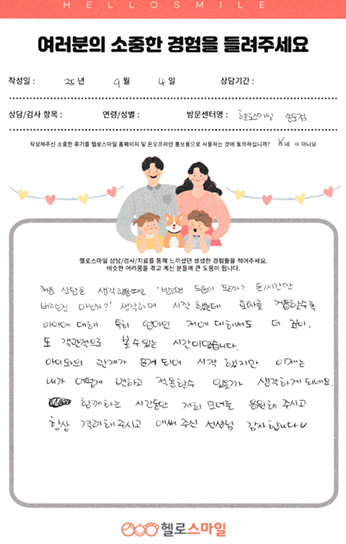 HELLOSMILE
여러분의 소중한 경험을 들려주세요
작성일 : 25 년 9 월 4 일 상담기간 :
상담/검사 항목 : 연령/성별 : 방문센터명 : 헬로스마일
작성해주신 소중한 후기를 헬로스마일 홈페이지 및 온오프라인 홍보용으로 사용하는 것에 동의하십니까? 네 ㅁ아니요
헬로스마일 상담/검사/치료를 통해 느끼셨던 생생한 경험들을 적어주세요.
비슷한 어려움을 겪고 계신 분들께 큰 도움이 됩니다.
처음 상담은 생각했을때는 도움이 될까? 돈/시간만
버리는건 아닌가?' 생각하며 시작 했는데 회차를 거듭할수록
아이에 대해 특히 엄마인 저에 대해서도 더 깊이,
또 객관적으로 볼 수 있는 시간이었습니다.
아이와의 관계가 되어 시작 했지만 이제는
내가 어떻게 변하고 적용할수 있을까 생각하게 되네요.
함께하는 시간동안 저희 모녀를 응원해 주시고
항상 격려해주시고 애써 주신 선생님 감사합니다
헬로스마일